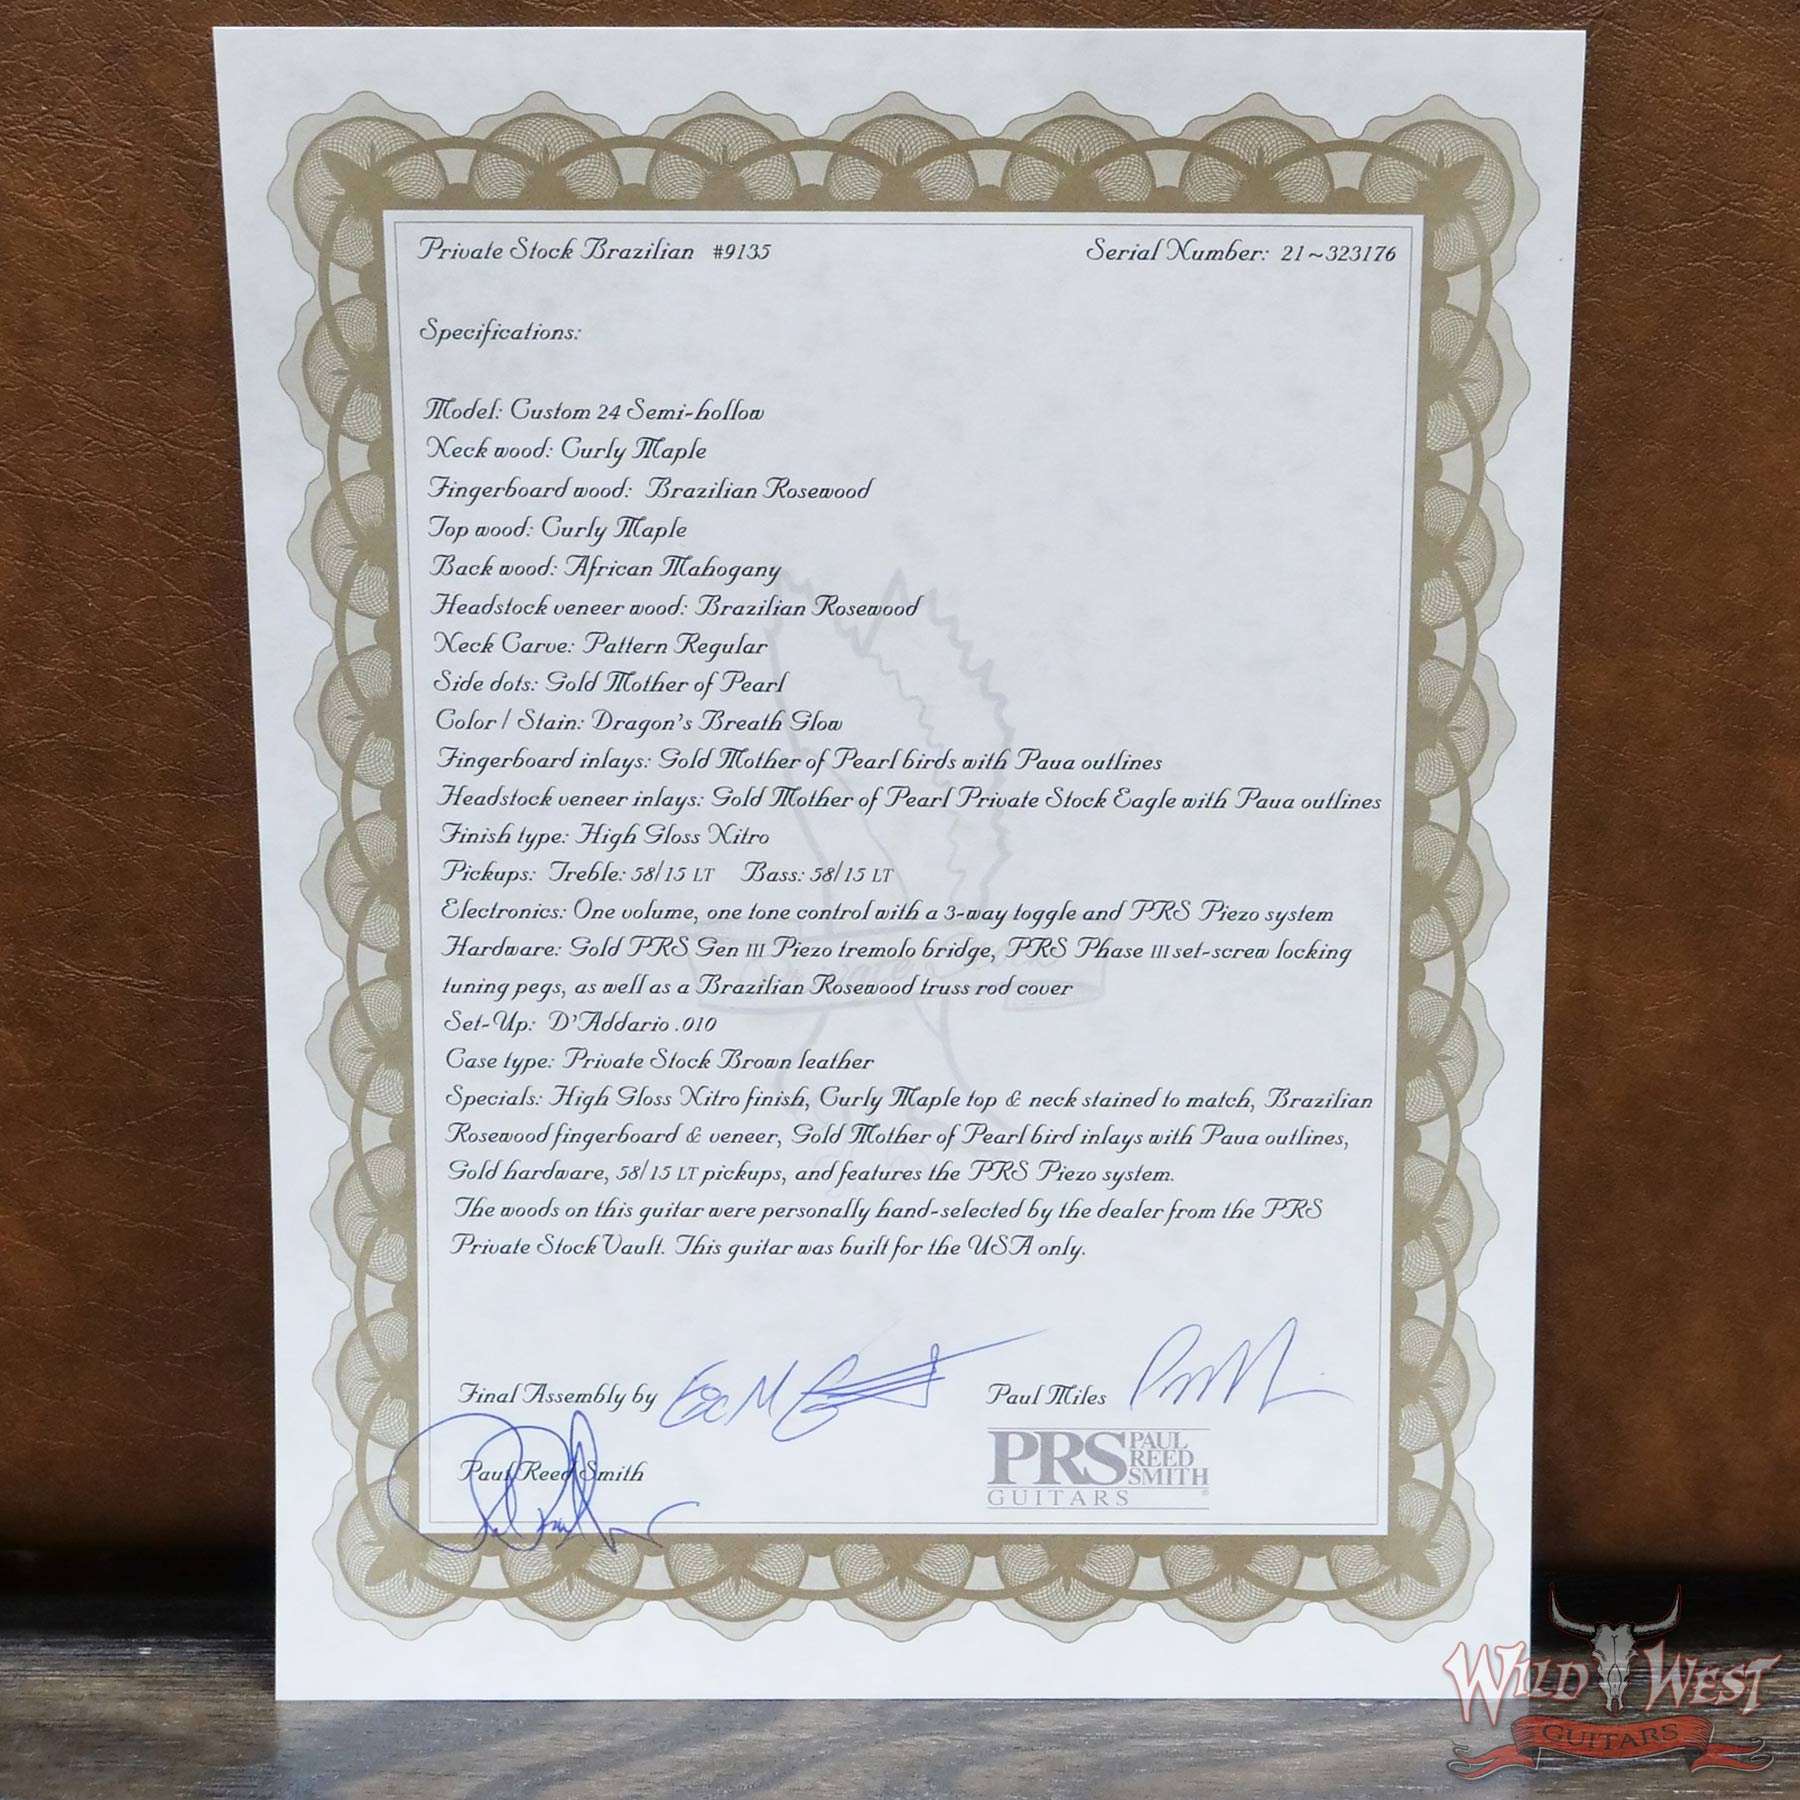 Private Stock Brazilian #9135
Serial Number: 21~323176
Specifications:
Model: Custom 24 Semi-hollow
Neck wood: Curly Maple
Fingerboard wood: Brazilian Rosewood
Top wood: Curly Maple
Back wood: African Mahogany
Headstock veneer wood: Brazilian Rosewood
Neck Carve: Pattern Regular
Side dots: Gold Mother of Pearl
Color / Stain: Dragon's Breath Glow
Fingerboard inlays: Gold Mother of Pearl birds with Paua outlines
Headstock veneer inlays: Gold Mother of Pearl Private Stock Eagle with Paua outlines
Finish type: High Gloss Nitro
Pickups: Treble: 58/15 LT Bass: 58/15 LT
Electronics: One volume, one tone control with a 3-way toggle and PRS Piezo system
Hardware: Gold PRS Gen III Piezo tremolo bridge, PRS Phase III set-screw locking
tuning pegs, as well as a Brazilian Rosewood truss rod cover
Set-Up: D'Addario .010
Case type: Private Stock Brown leather
Specials: High Gloss Nitro finish, Curly Maple top & neck stained to match, Brazilian
Rosewood fingerboard & veneer, Gold Mother of Pearl bird inlays with Paua outlines,
Gold hardware, 58/15 LT pickups, and features the PRS Piezo system.
The woods on this guitar were personally hand-selected by the dealer from the PRS
Private Stock Vault. This guitar was built for the USA only.
Final Assembly by
Paul Miles
Paul Reed Smith
PRS PAUL
REED
SMITH
GUITARS
WILD WEST
GUITARS